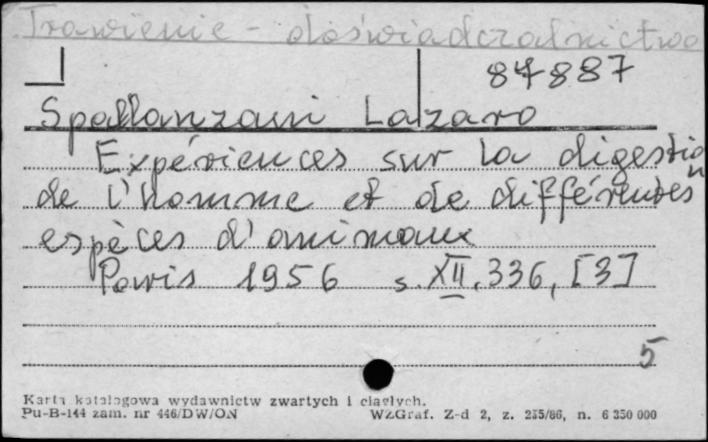 Trawienie - doświadczalnictwo
84887
Spallanzani Lazzaro
Expériences sur la digestion
de l'homme et de différentes
espèces d'animaux
Paris 1956 s. XII, 336, [3]
5
Karta katalogowa wydawnictw zwartych i ciągłych.
Pu-B-144 zam. nr 446/DW/ON WZGraf. Z-d 2, z. 255/86, n. 6 350 000